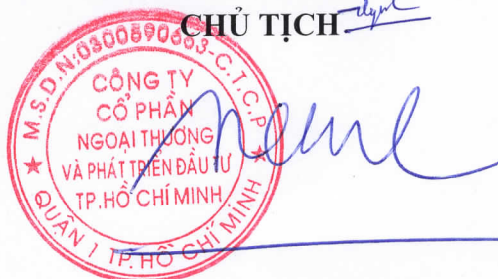 CHỦ TỊCH
M.S.D.N:0300890663-C.T.C.P
CÔNG TY
CỔ PHẦN
NGOẠI THƯƠNG
VÀ PHÁT TRIỂN ĐẦU TƯ
TP.HỒ CHÍ MINH
QUẬN 1 TP.HỒ CHÍ MINH